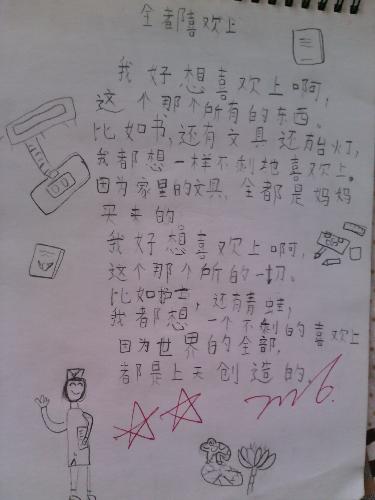 全都喜欢上
我好想喜欢上啊,
这个那个所有的东西。
比如书,还有文具还有台灯,
我都想一样不剩地喜欢上。
因为家里的文具,全都是妈妈
买来的
我好想喜欢上啊,
这个那个所的一切。
比如护士,还有青蛙,
我都想一个不剩的喜欢上
因为世界的全部,
都是上天创造的。